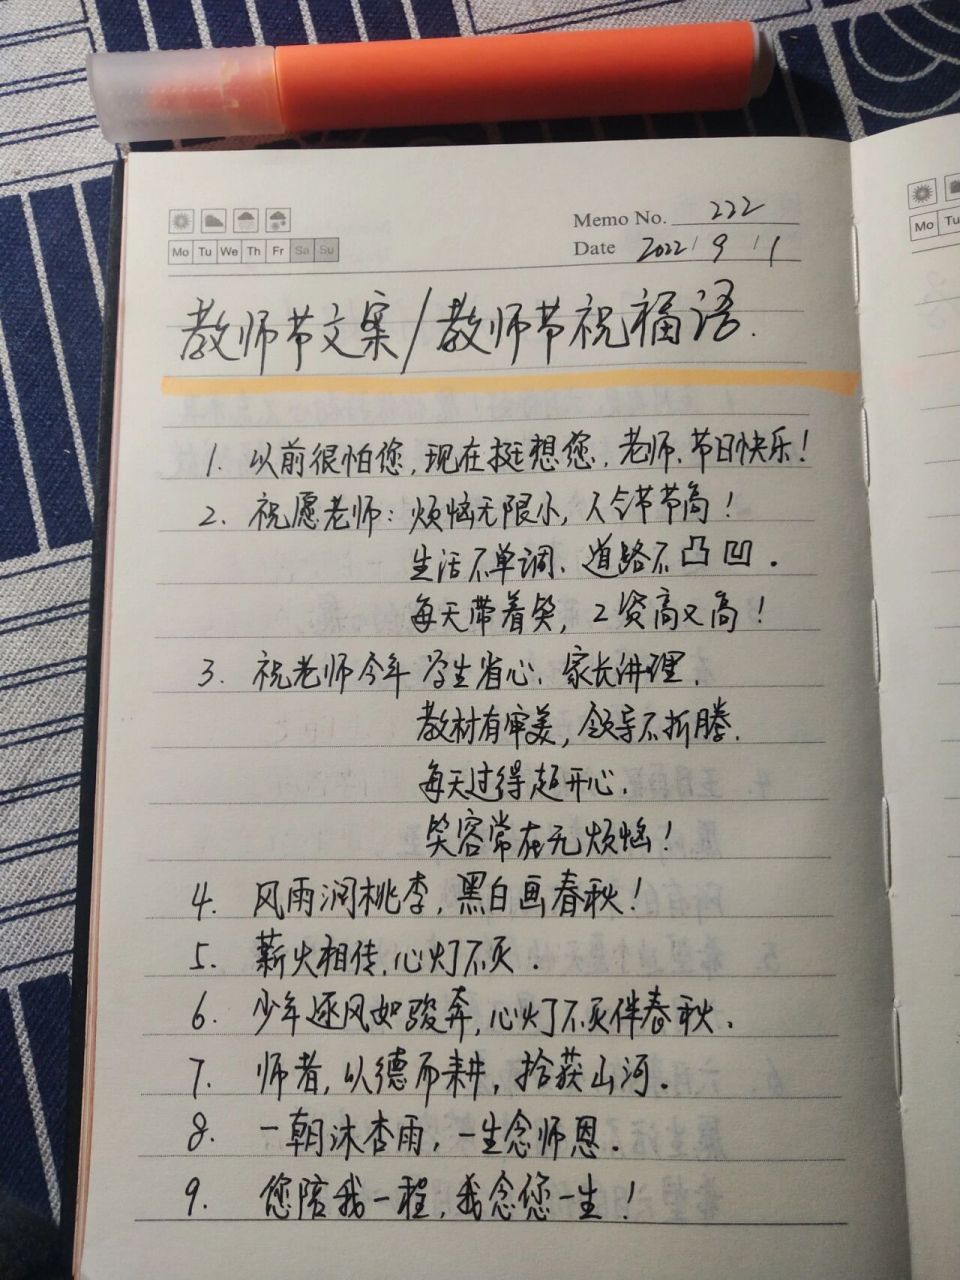 Memo No. 222
Mo Tu We Th Fr Sa Su
Date 2022/9/1
Mo Tu
教师节文案/教师节祝福语.
1. 以前很怕您,现在挺想您,老师、节日快乐!
2. 祝愿老师:烦恼无限小,人令节节高!
生活不单调、道路不凸凹.
每天带着笑,工资高又高!
3. 祝老师今年学生省心、家长讲理,
教材有审美,领导不折腾.
每天过得超开心,
笑容常在无烦恼!
4. 风雨润桃李,黑白画春秋!
5. 薪火相传,心灯不灭.
6. 少年逐风如骏奔,心灯不灭伴春秋.
7. 师者,以德而耕,拾获山河.
8. 一朝沐杏雨,一生念师恩.
9. 您陪我一程,我念您一生!